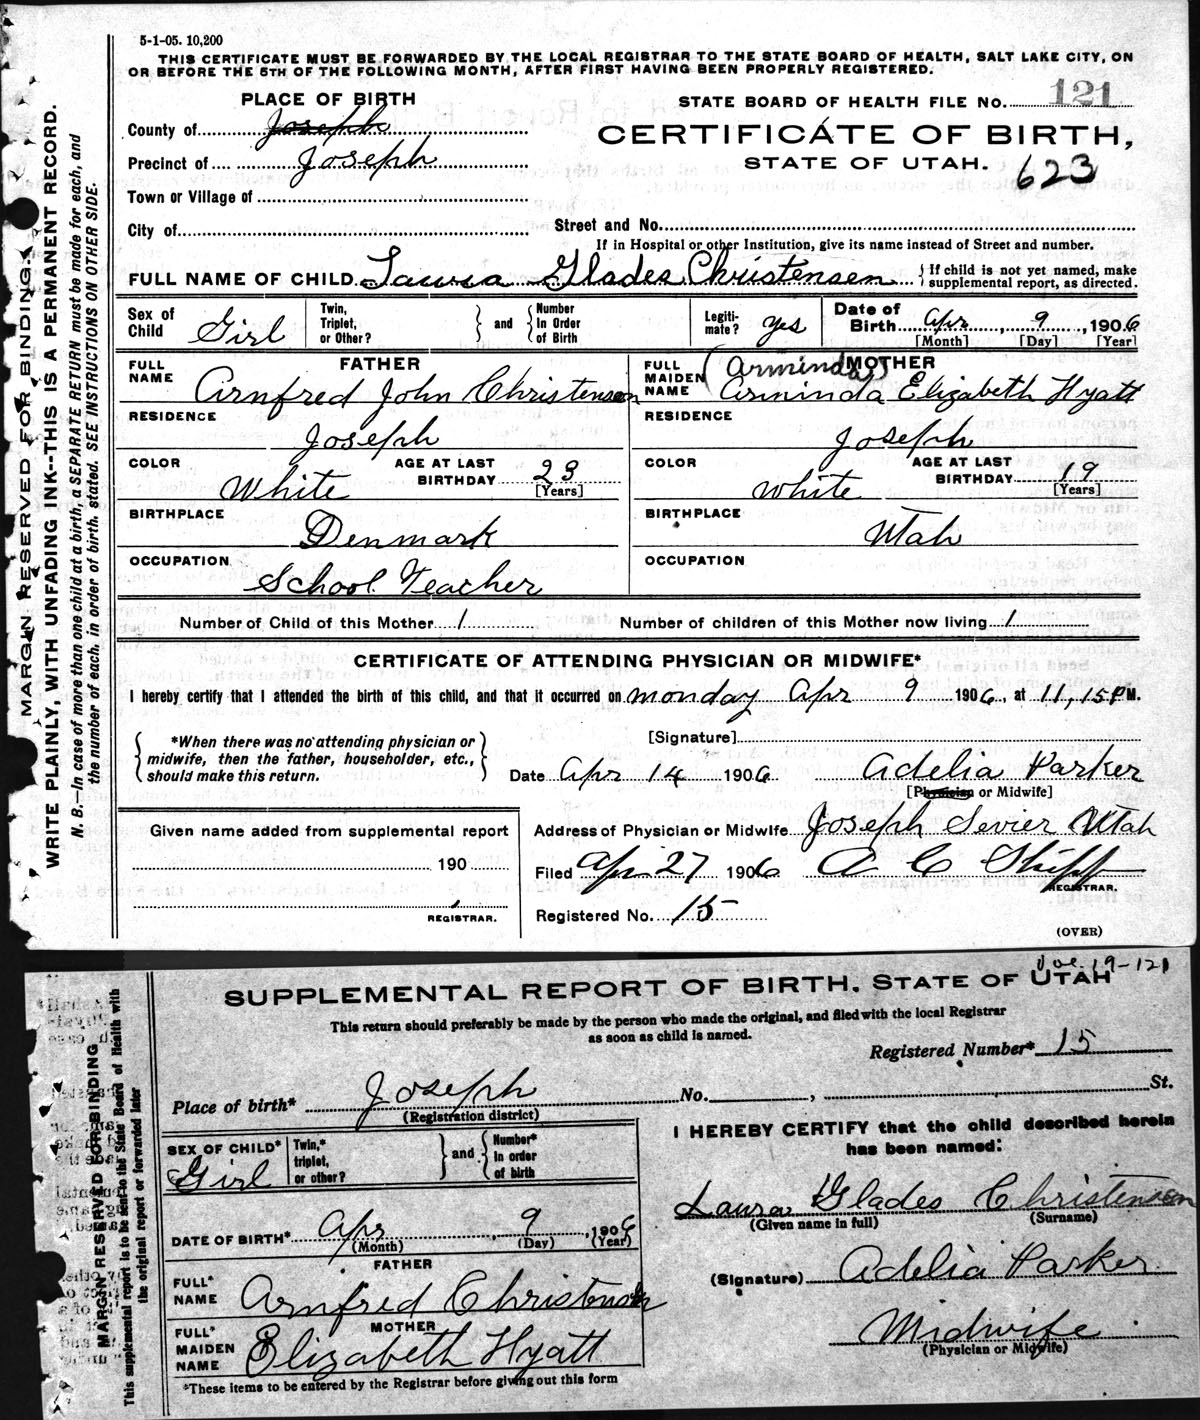 5-1-05. 10,200
THIS CERTIFICATE MUST BE FORWARDED BY THE LOCAL REGISTRAR TO THE STATE BOARD OF HEALTH, SALT LAKE CITY, ON
OR BEFORE THE 5TH OF THE FOLLOWING MONTH, AFTER FIRST HAVING BEEN PROPERLY REGISTERED.
PLACE OF BIRTH
STATE BOARD OF HEALTH FILE NO. 121
County of Joseph
CERTIFICATE OF BIRTH,
Precinct of Joseph
STATE OF UTAH. 623
Town or Village of
City of
Street and No.
If in Hospital or other Institution, give its name instead of Street and number.
FULL NAME OF CHILD Laura Glades Christensen { If child is not yet named, make
supplemental report, as directed.
Sex of Child Girl
Twin, Triplet, or Other? } and { Number in Order of Birth
Legitimate? yes
Date of Birth Apr, 9, 1906
[Month] [Day] [Year]
FATHER
FULL NAME Arnfred John Christensen
RESIDENCE Joseph
COLOR White AGE AT LAST BIRTHDAY 23
[Years]
BIRTHPLACE Denmark
OCCUPATION School Teacher
MOTHER
(Arminda)
FULL MAIDEN NAME Arminda Elizabeth Hyatt
RESIDENCE Joseph
COLOR White AGE AT LAST BIRTHDAY 19
[Years]
BIRTHPLACE Utah
OCCUPATION
Number of Child of this Mother 1 Number of children of this Mother now living 1
CERTIFICATE OF ATTENDING PHYSICIAN OR MIDWIFE*
I hereby certify that I attended the birth of this child, and that it occurred on monday Apr 9 1906, at 11,15 P M.
{ *When there was no attending physician or
midwife, then the father, householder, etc.,
should make this return. }
[Signature]
Date Apr 14 1906 Adelia Parker
[Physician or Midwife]
Given name added from supplemental report
190
REGISTRAR.
Address of Physician or Midwife Joseph Sevier Utah
Filed Apr 27 1906 A C Shipp
REGISTRAR.
Registered No. 15
(OVER)
MARGIN RESERVED FOR BINDING.
WRITE PLAINLY, WITH UNFADING INK--THIS IS A PERMANENT RECORD.
N. B.—In case of more than one child at a birth, a SEPARATE RETURN must be made for each, and
the number of each, in order of birth, stated. SEE INSTRUCTIONS ON OTHER SIDE.
19-121
SUPPLEMENTAL REPORT OF BIRTH, STATE OF UTAH
This return should preferably be made by the person who made the original, and filed with the local Registrar
as soon as child is named.
Registered Number* 15
Place of birth* Joseph No. , St.
(Registration district)
SEX OF CHILD* Girl
Twin,* triplet, or other? } and { Number* in order of birth
DATE OF BIRTH* Apr, 9, 1906
(Month) (Day) (Year)
FATHER
FULL* NAME Arnfred Christensen
MOTHER
FULL* MAIDEN NAME Elizabeth Hyatt
*These items to be entered by the Registrar before giving out this form
I HEREBY CERTIFY that the child described herein
has been named:
Laura Glades Christensen
(Given name in full) (Surname)
(Signature) Adelia Parker
Midwife
(Physician or Midwife)
MARGIN RESERVED FOR BINDING
This supplemental report is to be sent to the State Board of Health with
the original report or forwarded later